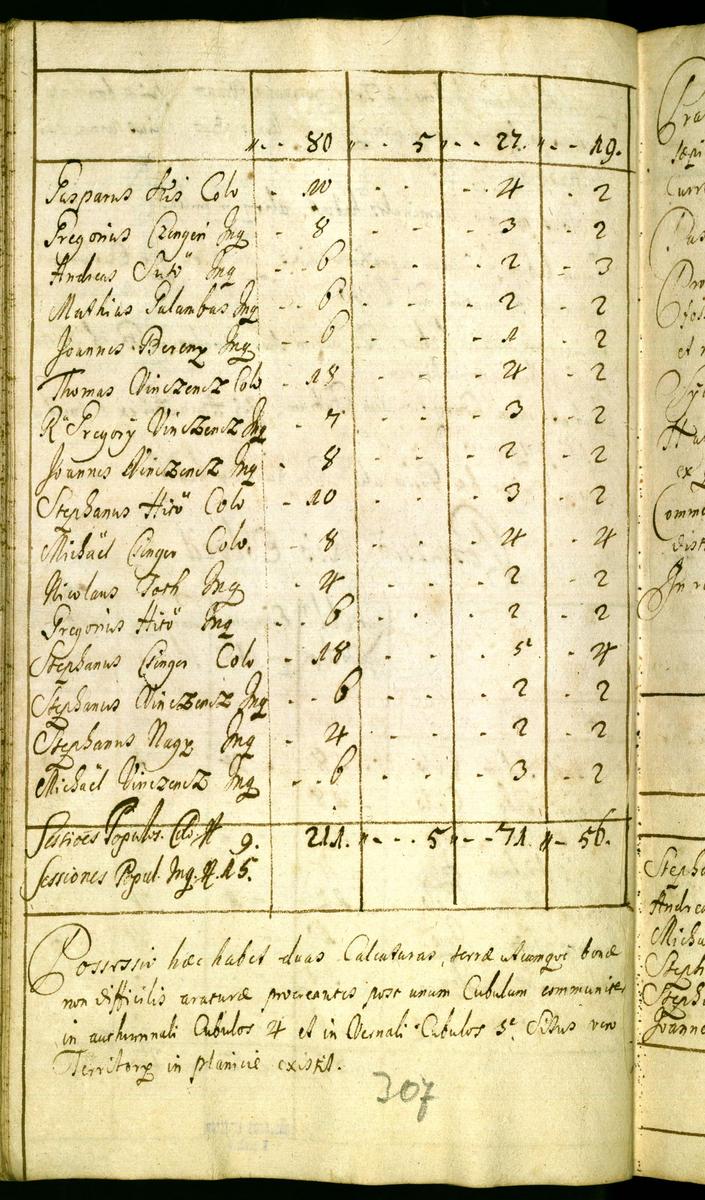 80 5 27. 19.
Gasparus Kis Colo 10 4 2
Gregorius Czengeri Inq 8 3 2
Andreas Sütö Inq 6 2 3
Mathias Galambus Inq 6 2 2
Joannes Berenz Inq 6 1 2
Thomas Vinczencz Colo 18 4 2
Gregory Vinczencz Inq 7 3 2
Joannes Vinczencz Inq 8 2 2
Stephanus Hitö Colo 10 3 2
Michaël Csinger Colo 8 4 4
Nicolaus Toth Inq 4 2 2
Gregorius Hitö Inq 6 2 2
Stephanus Csinger Colo 18 5 4
Stephanus Vinczencz Inq 6 2 2
Stephanus Nagy Inq 4 2 2
Michaël Vinczencz Inq 6 3 2
Sessiões Populos. Colo 9. 211. 5 71. 56.
Sessiones Popul. Inq. 15.
Possessio hæc habet duas Calcaturas, terræ utcumqve bonæ
non difficilis araturæ procreantis post unum Cubulum communiter
in authumnali Cubulos 4 et in Vernali Cubulos 5. Situs vero
Territory in planicie existit.
307